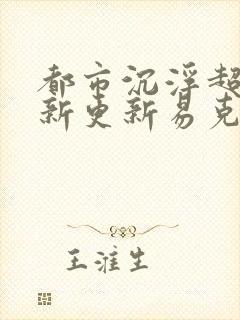 都市沉浮超
新更新易克
王淮生